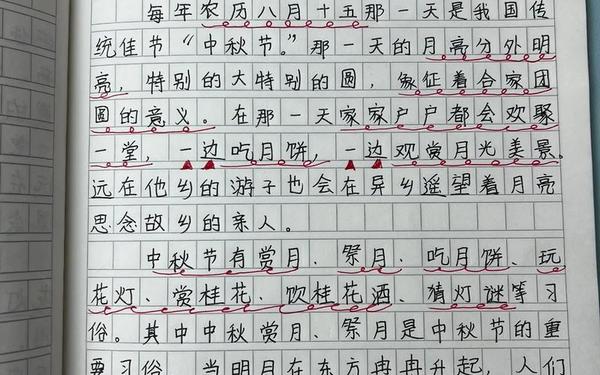 每年农历八月十五那一天是我国传
统佳节“中秋节。”那一天的月亮分外明
亮，特别的大特别的圆，象征着合家团
圆的意义。在那一天家家户户都会欢聚
一堂，一边吃月饼，一边观赏月光美景。
远在他乡的游子也会在异乡遥望着月亮
思念故乡的亲人。
中秋节有赏月、祭月、吃月饼、玩
花灯、赏桂花、饮桂花酒、猜灯谜等习
俗。其中中秋赏月、祭月是中秋节的重
要习俗。当明月在东方冉冉升起，人们